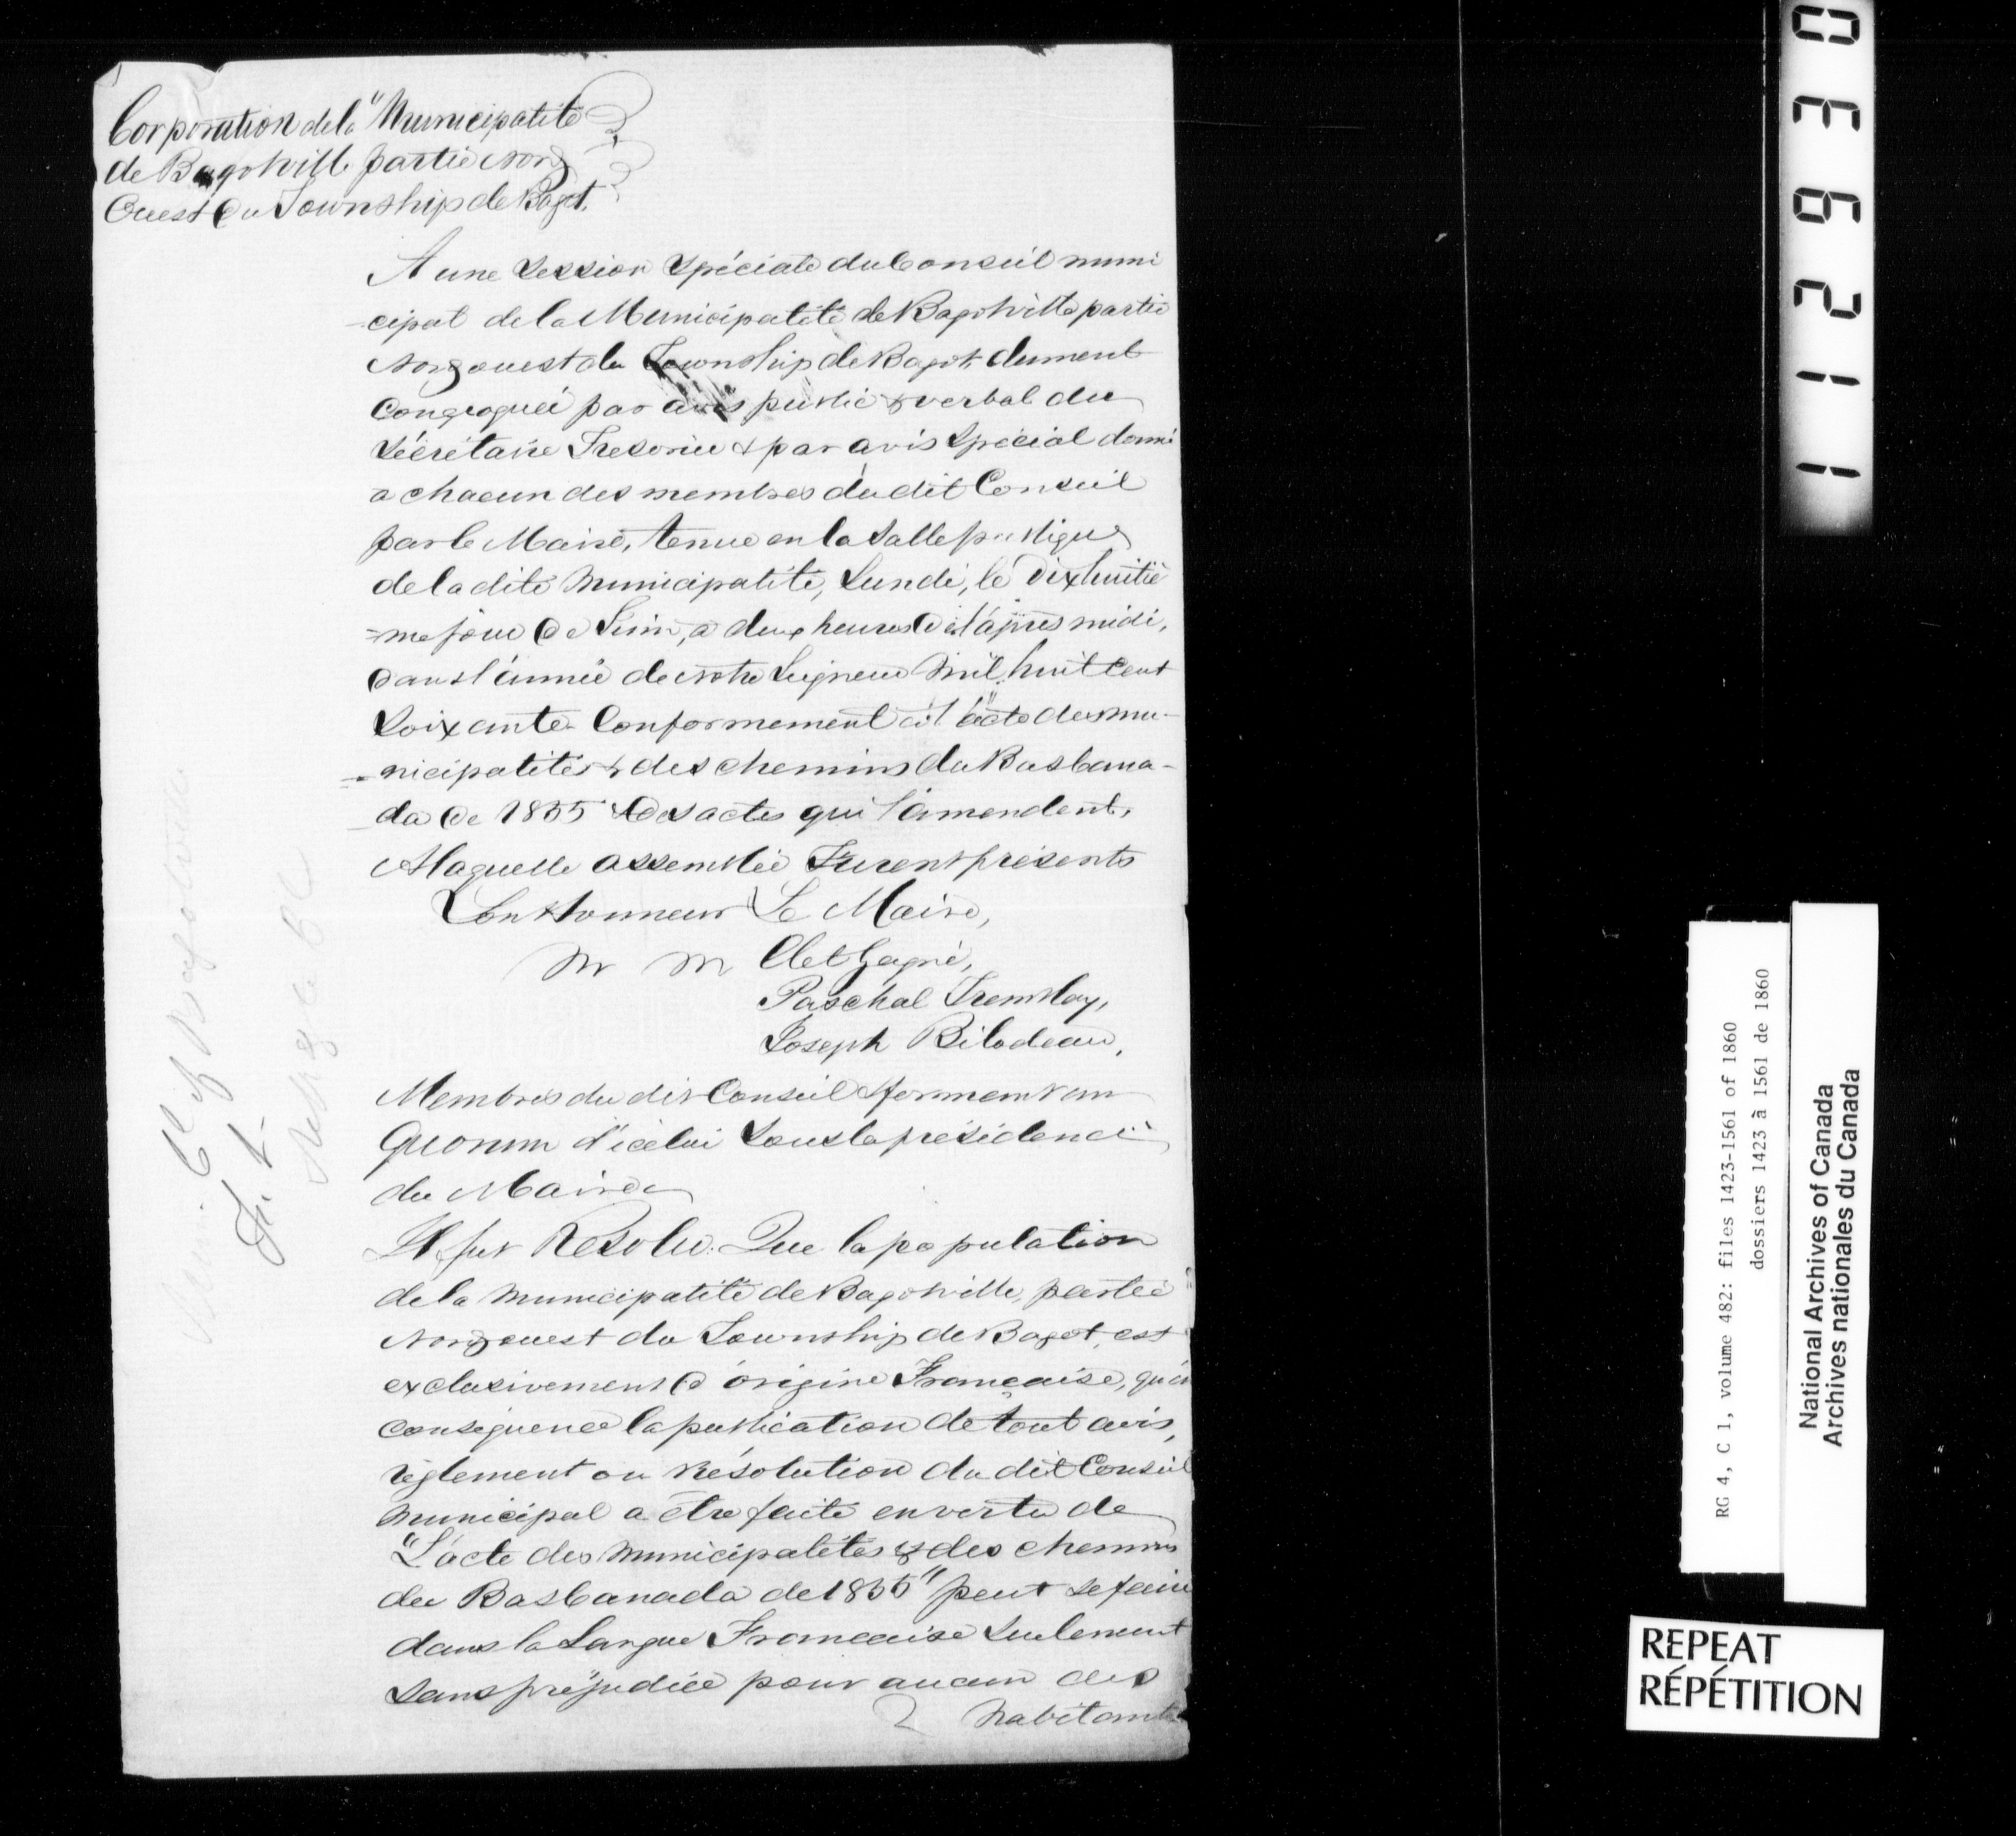 Corporation de la "Municipalité
de Bagotville partie Nord
Ouest du Township de Bagot.
A une Session Spéciale du Conseil muni
-cipal de la Municipalité de Bagotville partie
Nord ouest du Township de Bagot, dument
Congroquéé par avis public & verbal du
Sécrétaire Tresorier & par avis Spécial donné
a chacun des membres du dit Conseil
par le Maire, tenue en la Salle publique
de la dite Municipalité, Lundi, le Dixhuitiè
=me jour de Juin, a deux heures de l'après midi,
dans l'année de notre Seigneur Mil huit Cent
Soixante Conformement à l'"acte des mu-
-nicipalités & des chemins du Bas Cana-
-da de 1855 & des actes qui l'amendent,
A laquelle assemblée Furent présents
Son Honneur Le Maire,
M M Clet Gagné,
Paschal Tremblay,
Joseph Bilodeau,
Membres du dit Conseil & formant un
Quorum d'icelui Sous la présidence
du Maire
Il fut Résolu: Que la population
de la Municipalité de Bagotville, partie
Nord ouest du Township de Bagot, est
exclusivement d'origine Française, qu'en
conséquence la publication de tout avis,
règlement ou Résolution du dit Conseil
Municipal a être faite en vertu de
"L'acte des Municipalités & des chemins
du Bas Canada de 1855" peut se faire
dans la Langue Française Seulement
Sans préjudice pour aucun des
2 habitants
Bagotville
112930
RG 4, C 1, volume 482: files 1423-1561 of 1860
dossiers 1423 à 1561 de 1860
National Archives of Canada
Archives nationales du Canada
REPEAT
RÉPÉTITION